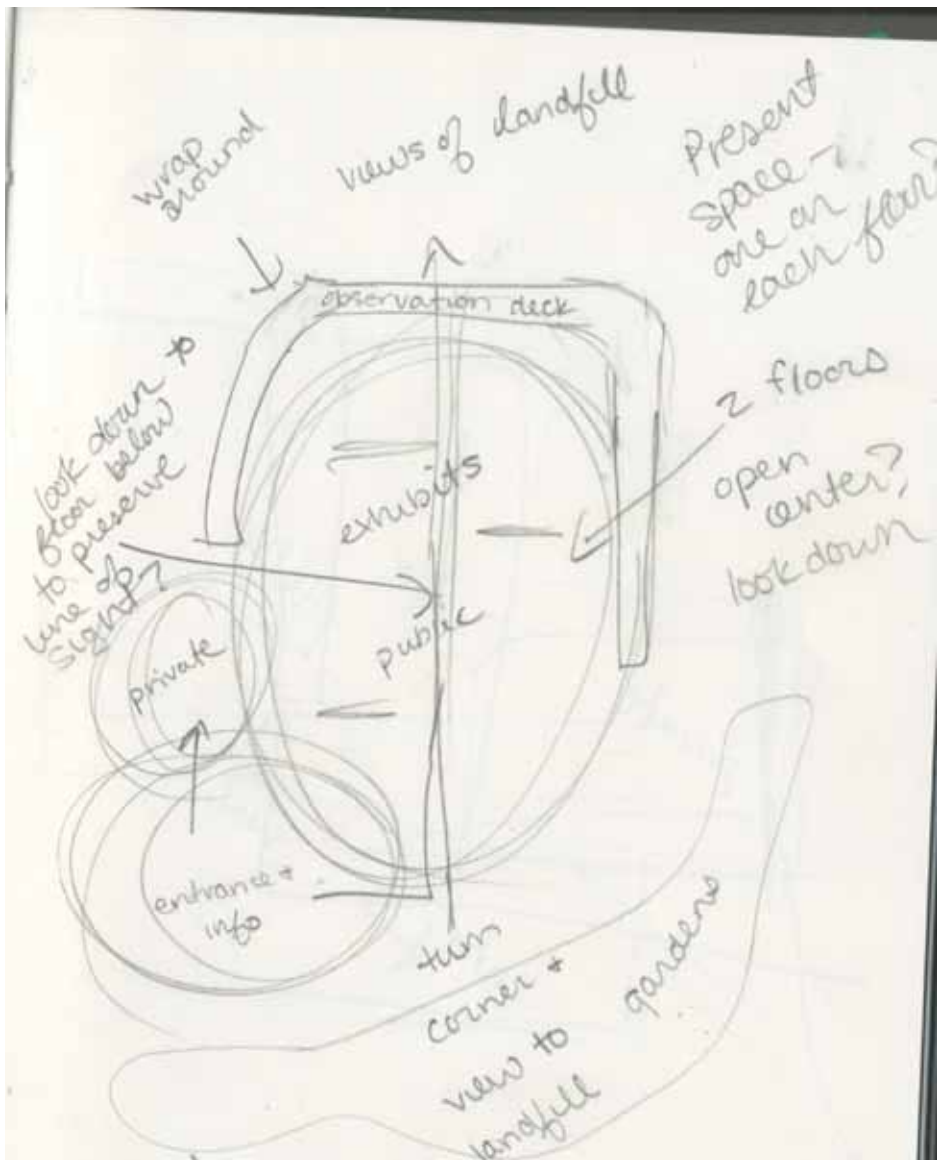 wrap
around
views of landfill
Present
space -
one on
each floor?
observation deck
look down to
floor below
to preserve
line of
sight?
2 floors
open
center?
look down
exhibits
public
private
entrance +
info
turn
corner +
view to
landfill
gardens